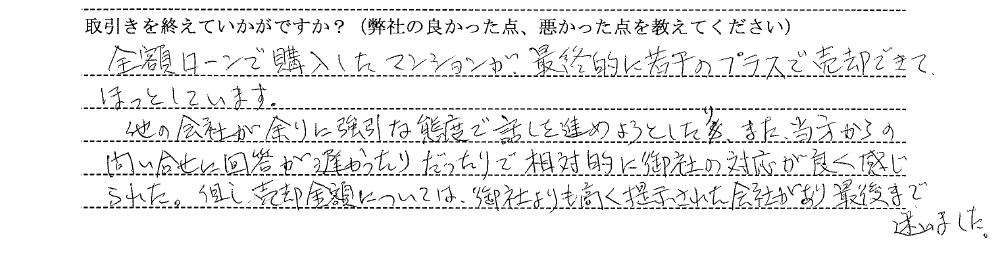 取引きを終えていかがですか？（弊社の良かった点、悪かった点を教えてください）
全額ローンで購入したマンションが、最終的に若干のプラスで売却できて、
ほっとしています。
他の会社が余りに強引な態度で話しを進めようとしたり、また、当方からの
問い合せに回答が遅かったりだったりで相対的に御社の対応が良く感じ
られた。但し、売却金額については、御社よりも高く提示された会社があり最後まで
迷いました。